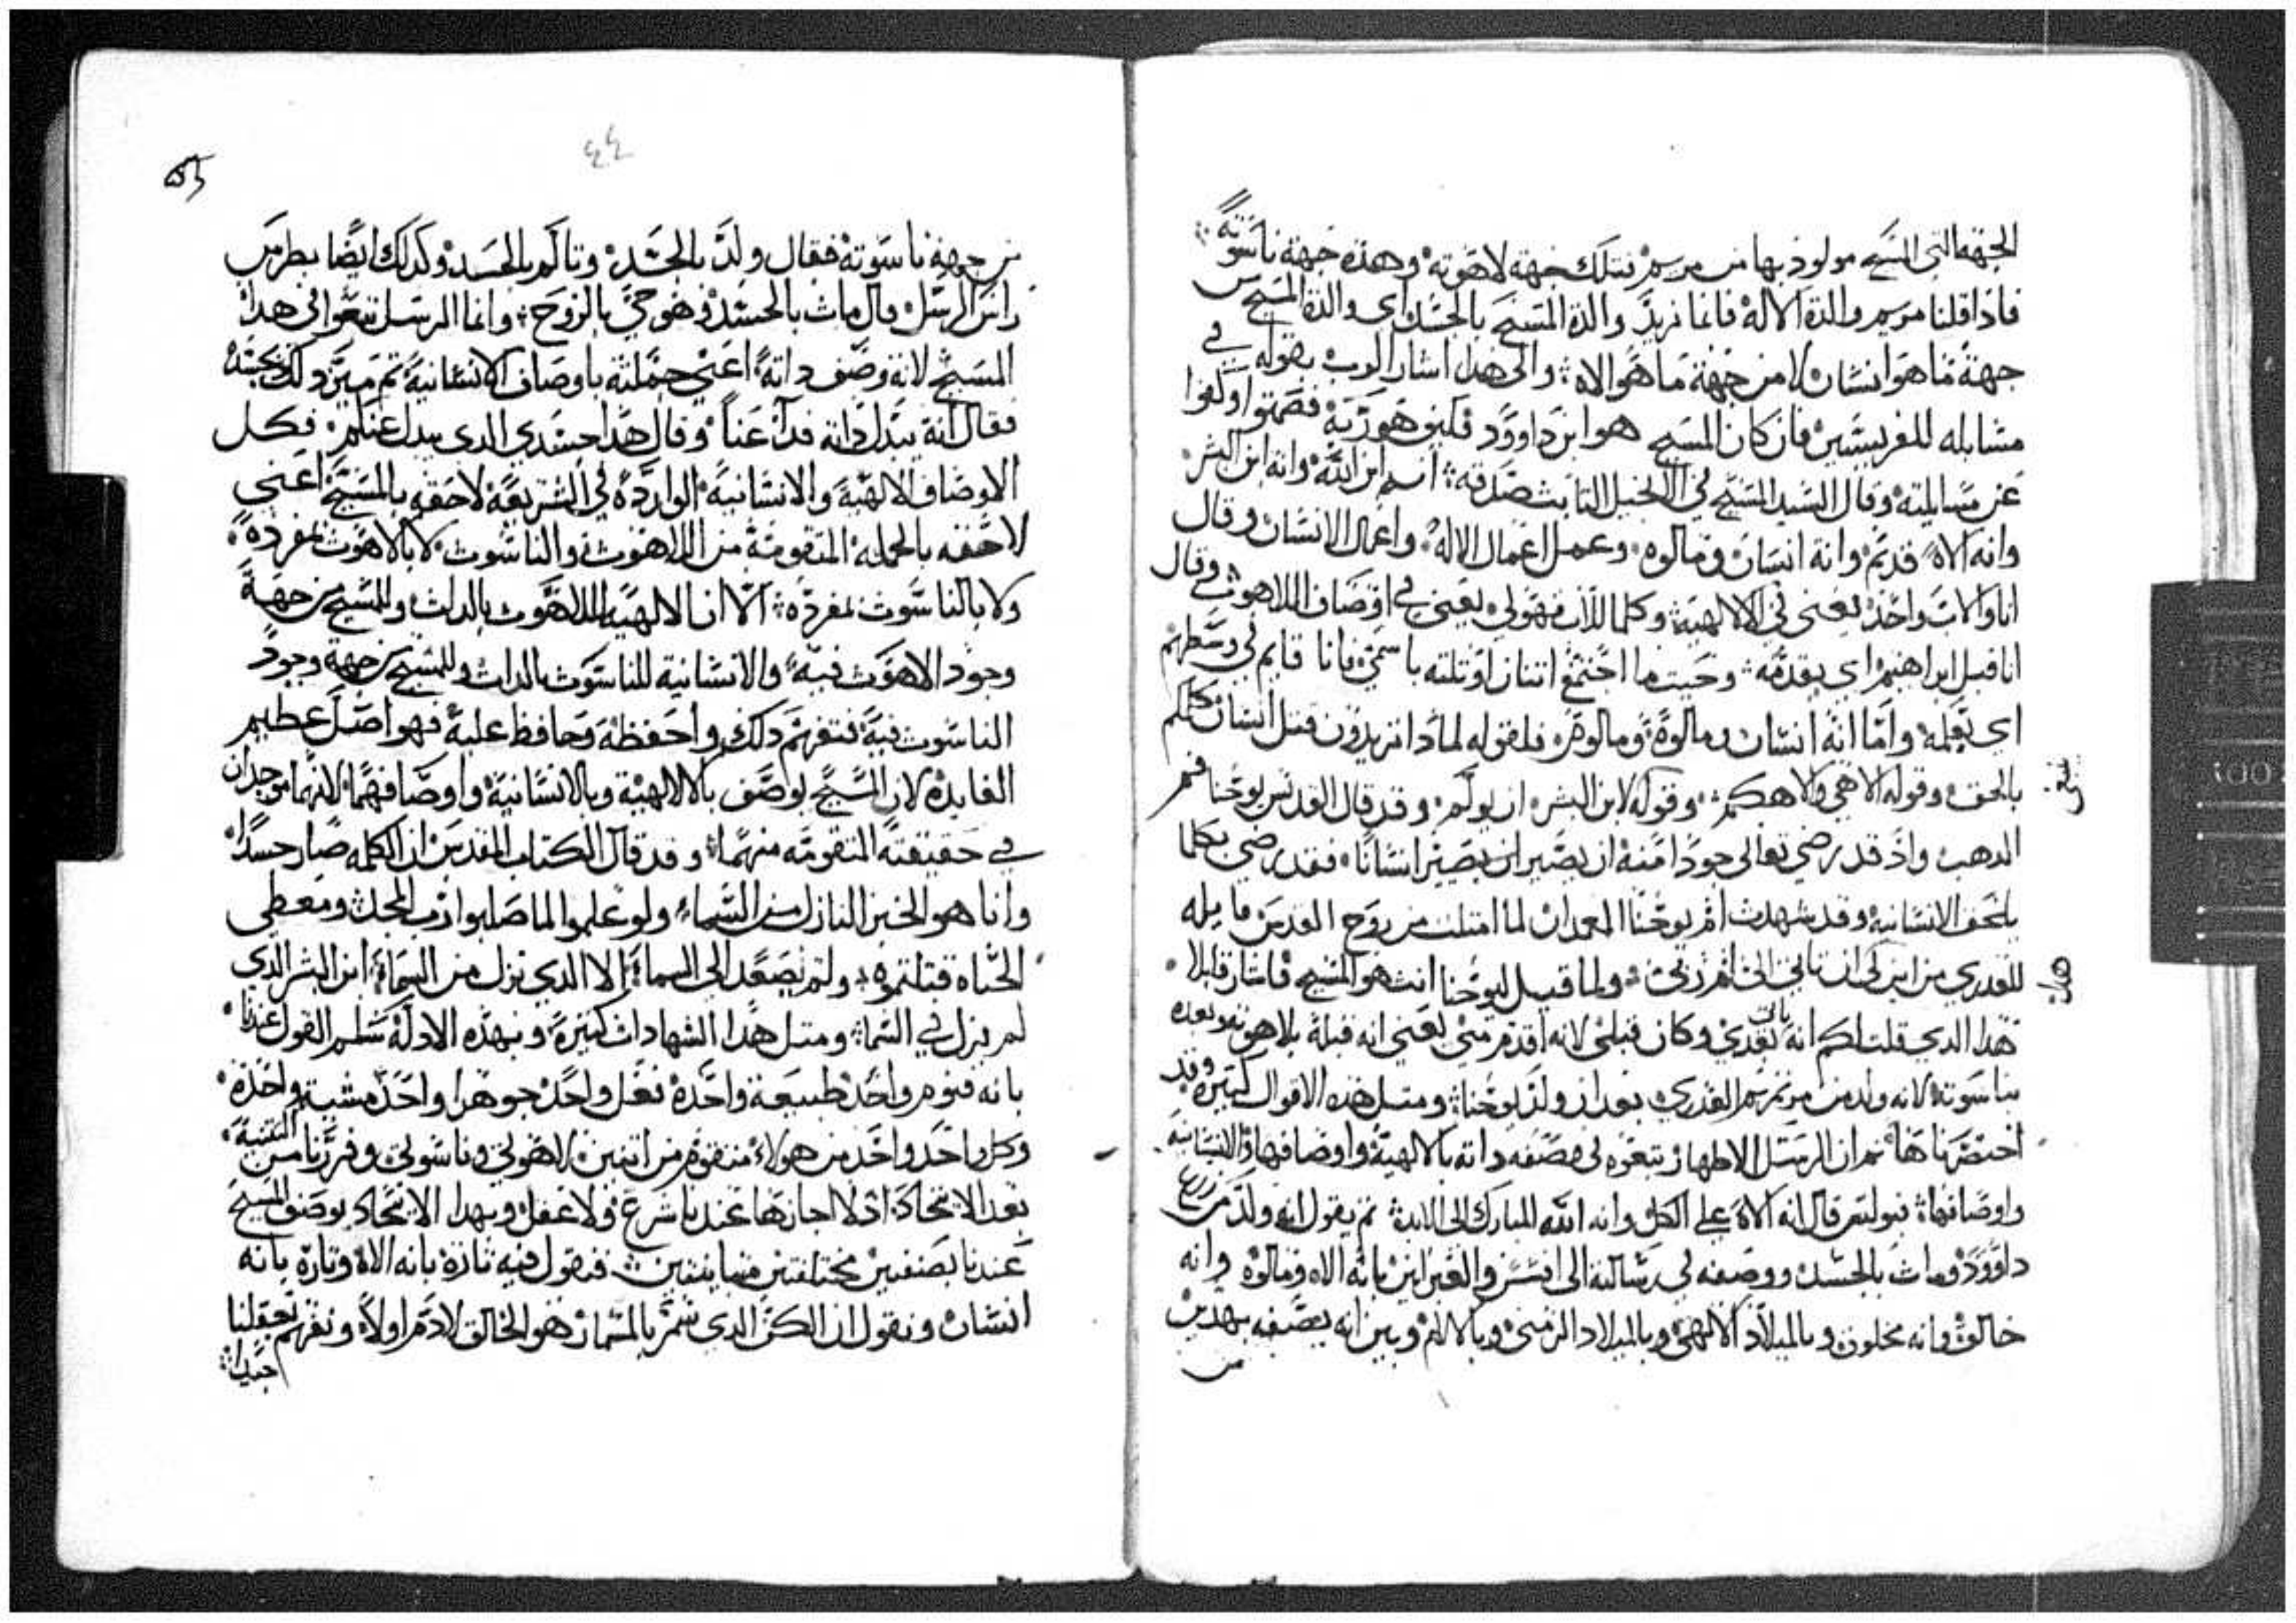 الجهه التي المسيح مولود بها من مريم فتلك جهة لاهوته وهذه جهة ناسوته
فاذا قلنا مريم والدة الاله فانما نريد والدة المسيح بالجسد اي والدة المسيح من
جهة ما هو انسان لا من جهة ما هو الاه والى هدا اشار الرب بقوله في
مسايله للفريسيين فان كان المسيح هو ابن داوود فكيف هو ربه فصمتوا وكفوا
عن مسايلته وقال السيد المسيح في الانجيل الثابت صدقه انه ابن الله وانه ابن البشر
وانه الاه قديم وانه انسان ومالوه وعمل اعمال الاله واعمال الانسان وقال
انا والاب واحد يعني في الالهية وكلما للاب فهو لي يعني في اوصاف اللاهوت وقال
انا قبل ابراهيم اي بقدمه وحيت ما اجتمع اتنان او تلته باسمي فانا قايم في وسطهم
اي بعلمه واما انه انسان ومالوه فلقوله لمادا تريدون قتل انسان كلمكم
بالحق وقوله الاهي والاهكم وقوله لابن البشر ان يولم وقد قال القديس يوحنا فم
الدهب واذ قد رضي تعالى جودا منه ان يصير انسانا فقد رضي بكلما
يلحق الانسانيه وقد شهدت ام يوحنا المعمدان لما امتلت من روح القدس قايله
للعدري من اين لي ان تاتي الي ام ربي ولما قيل ليوحنا انت هو المسيح فاشار قايلا
هدا الدي قلت لكم انه ياتي بعدي وكان قبلي لانه اقدم مني يعني انه قبله بلاهوته وبعده
بناسوته لانه ولد من مريم العدري بعد ان ولد يوحنا ومتل هده الاقوال كتيرة وقد
اختصرناها تم ان الرسل الاطهار تبعوه في وصفه داته بالالهية واوصافها والانسانيه
واوصافها فبولس قال انه الاه على الكل وانه الله المبارك الى الابد تم يقول انه ولد من زرع
داوود ومات بالجسد ووصفه في رسالته الى افسس والعبرانيين بانه الاه ومالوه وانه
خالق وانه مخلوق وبالميلاد الالهي وبالميلاد الزمني وبالالام وبين انه يصفه بهدين
من
٤٤
من جهة ناسوته فقال ولد بالجسد وتالم بالجسد وكدلك ايضا بطرس
راس الرسل قال مات بالجسد وهو حي بالروح وانما الرسل تبعوا في هدا
المسيح لانه وصف داته اعني جملته باوصاف الانسانية تم ميز دلك بجسده
فقال انه يبدل داته فدا عنا وقال هدا جسدي الدي يبدل عنكم فكل
الاوصاف الالهية والانسانية الواردة في الشريعة لاحقه بالمسيح اعني
لاحقه بالجمله المتقومة من اللاهوت والناسوت لا بالاهوت بمفرده
ولا بالناسوت بمفرده الا ان الالهية للاهوت بالدات وللمسيح من جهة
وجود الاهوت فيه والانسانية للناسوت بالدات وللمسيح من جهة وجود
الناسوت فيه فتفهم دلك واحفظه وحافظ عليه فهو اصل عظيم
الفايدة لان المسيح يوصف بالالهية وبالانسانية واوصافهما لانهما موجدان
في حقيقته المتقومه منهما وقد قال الكتاب المقدس ان الكلمه صار جسدا
وانا هو الخبز النازل من السماء ولو علموا لما صلبوا رب المجد ومعطي
الحياه قتلتموه ولم يصعد الى السماء الا الدي نزل من السماء ابن البشر الدي
لم يزل في السما ومتل هدا الشهادات كتيرة وبهده الادلة سلم القول عندنا
بانه قنوم واحد طبيعة واحدة فعل واحد جوهرا واحد مشية واحدة
وكل واحد واحد من هولاء متقوم من اتنين لاهوتي وناسوتي وفررنا من التتنية
بعد الاتحاد اد لا اجازها عندنا شرع ولا عقل وبهدا الاتحاد يوصف المسيح
عندنا بصنفين مختلفتين متباينتين فنقول فيه تارة بانه الاه وتارة بانه
انسان ونقول ان الكف الدي سمر بالمسمار هو الخالق لادم اولا ونفهم بعقلنا
جيدا